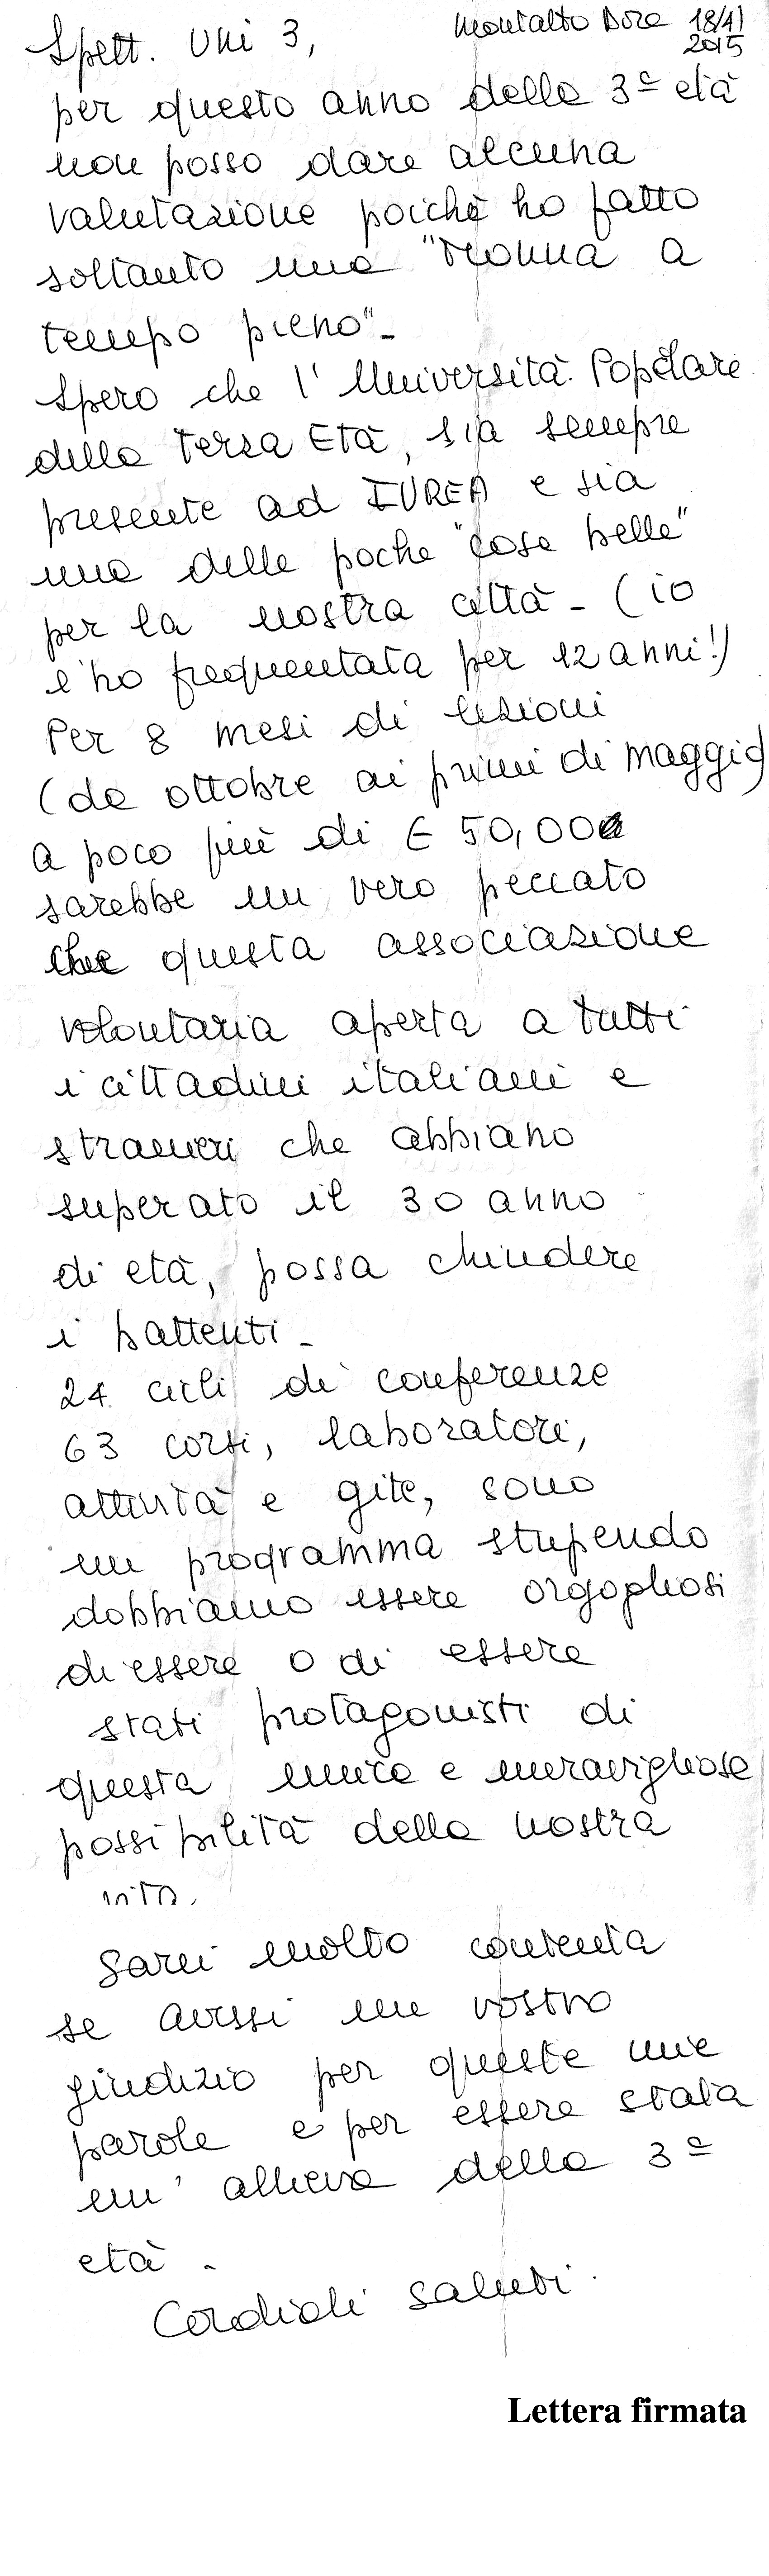 Montalto Dora 18/4/
2015
Spett. Uni 3,
per questo anno della 3ª età
non posso dare alcuna
valutazione poichè ho fatto
soltanto una "nonna a
tempo pieno"-
Spero che l'Università Popolare
della Terza Età, sia sempre
presente ad IVREA e sia
una delle poche "cose belle"
per la nostra città - (io
l'ho frequentata per 12 anni!)
Per 8 mesi di lezioni
(da ottobre ai primi di maggio)
a poco più di € 50,00
sarebbe un vero peccato
che questa associazione
volontaria aperta a tutti
i cittadini italiani e
stranieri che abbiano
superato il 30 anno
di età, possa chiudere
i battenti -
24 cicli di conferenze
63 corsi, laboratori,
attività e gite, sono
un programma stupendo
dobbiamo essere orgogliosi
di essere o di essere
stati protagonisti di
questa unica e meravigliosa
possibilità della nostra
vita.
Sarei molto contenta
se avessi un vostro
giudizio per queste mie
parole e per essere stata
un'allieva della 3ª
età -
Cordiali saluti.
Lettera firmata